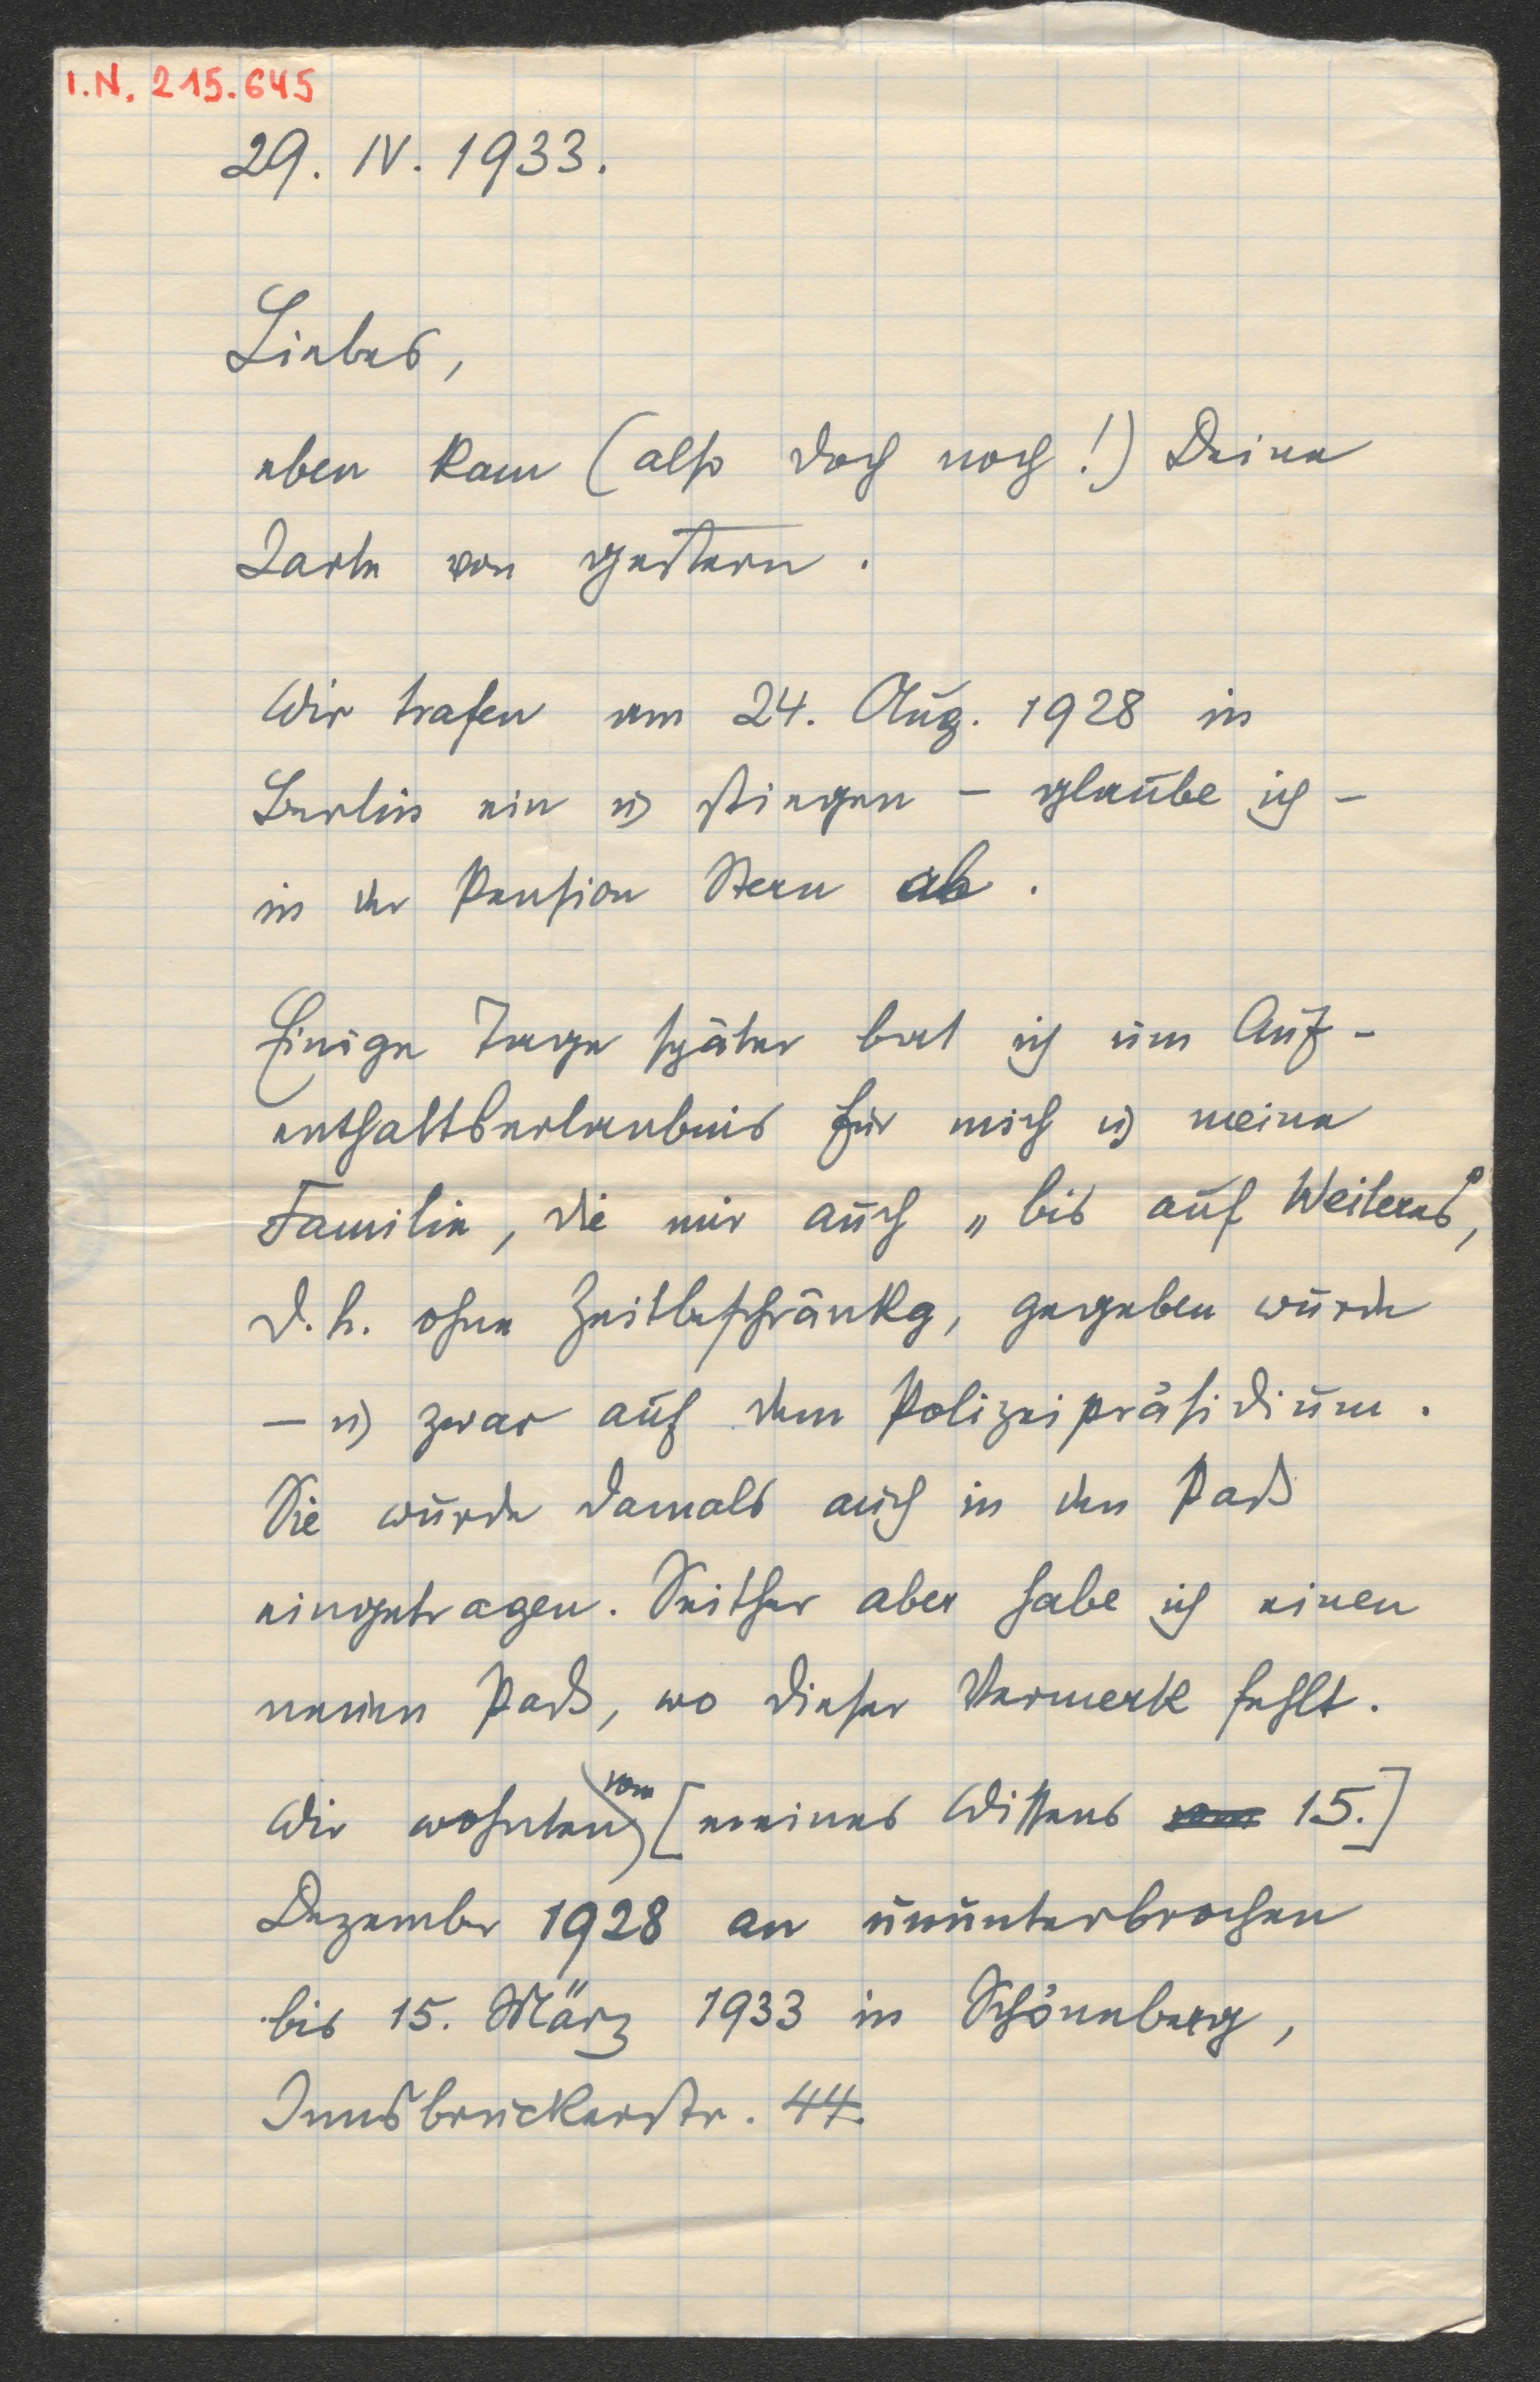 I.N. 215.645
29. IV. 1933.
Liebes,
eben kam (also doch noch!) Deine
Karte von gestern.
Wir trafen am 24. Aug. 1928 in
Berlin ein u) stiegen – glaube ich –
in der Pension Stern ab.
Einige Tage später bat ich um Auf-
enthaltserlaubnis für mich u) meine
Familie, die mir auch „bis auf Weiteres“,
d. h. ohne Zeitbeschränkg, gegeben wurde
– u) zwar auf dem Polizeipräsidium.
Sie wurde damals auch in den Paß
eingetragen. Seither aber habe ich einen
neuen Paß, wo dieser Vermerk fehlt.
Wir wohnten vom [meines Wissens vom 15.]
Dezember 1928 an ununterbrochen
bis 15. März 1933 in Schöneberg,
Innsbruckerstr. 44.